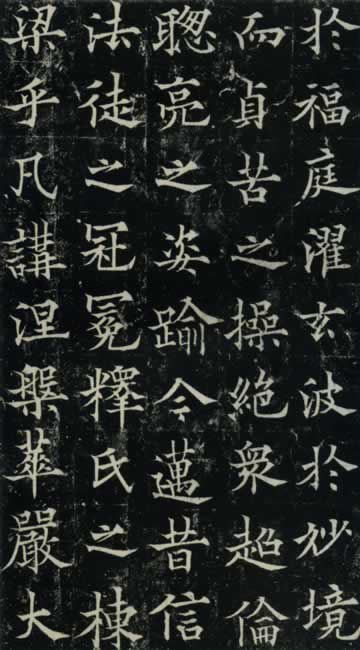 於福庭濯玄波於妙境
而貞苦之操絶衆超倫
聦亮之姿踰今邁昔信
法徒之冠冕釋氏之棟
梁乎凡講涅槃華嚴大